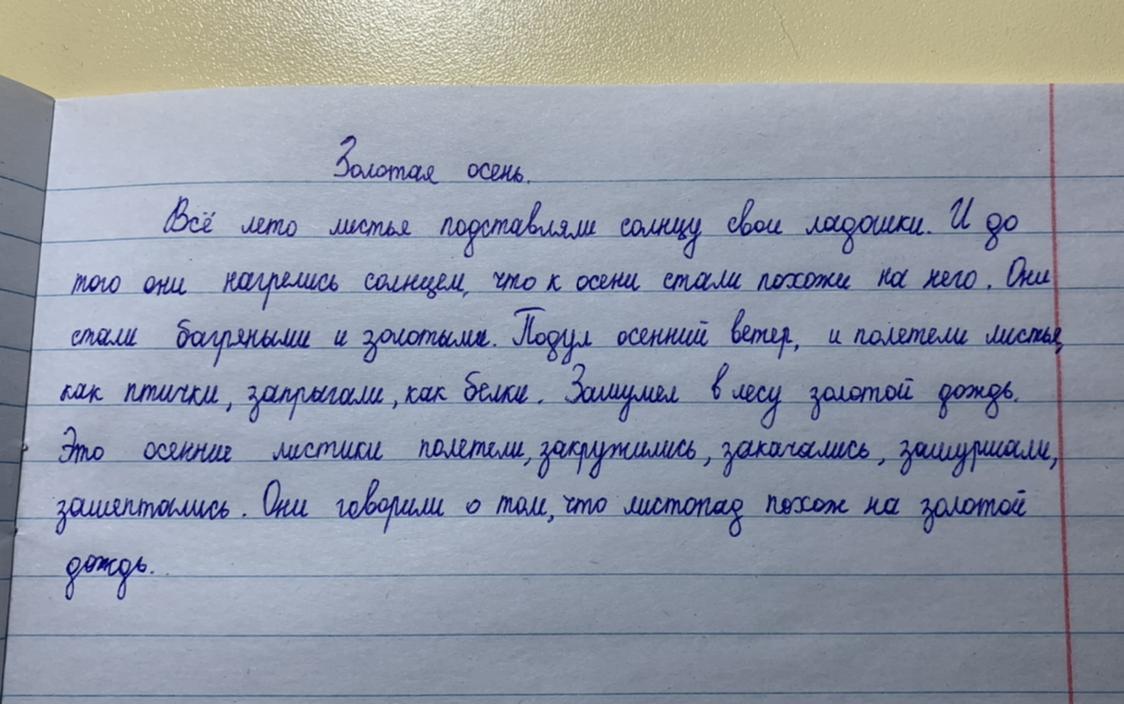 Золотая осень.
Всё лето листья подставляли солнцу свои ладошки. И до
того они нагрелись солнцем, что к осени стали похожи на него. Они
стали багряными и золотыми. Подул осенний ветер, и полетели листья,
как птички, запрыгали, как белки. Зашумел в лесу золотой дождь.
Это осенние листики полетели, закружились, закачались, зашуршали,
зашептались. Они говорили о том, что листопад похож на золотой
дождь.